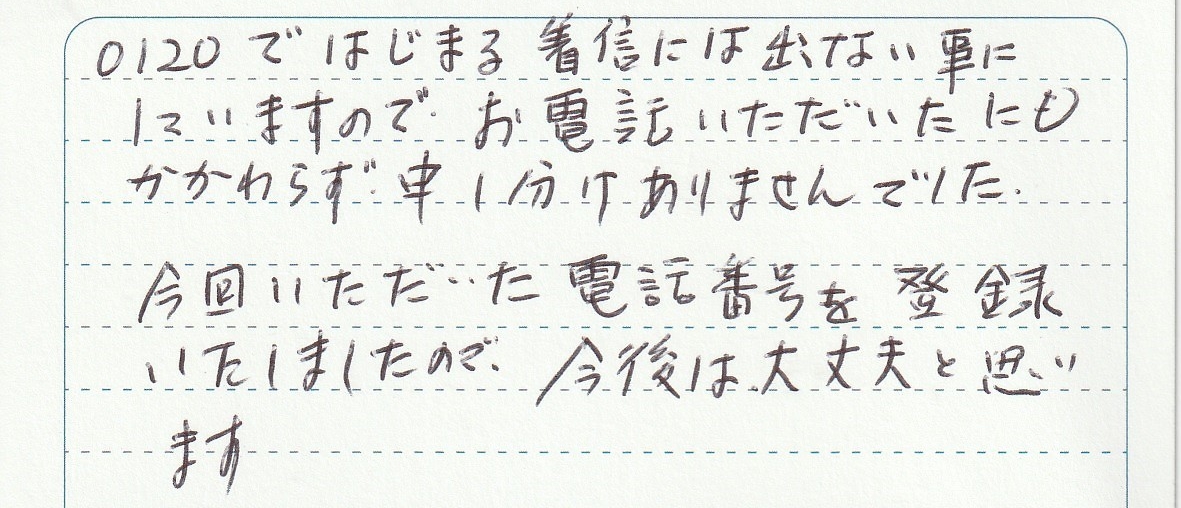 0120ではじまる着信には出ない事に
していますので、お電話いただいたにも
かかわらず、申し分けありませんでした。
今回いただいた電話番号を登録
いたしましたので、今後は大丈夫と思い
ます